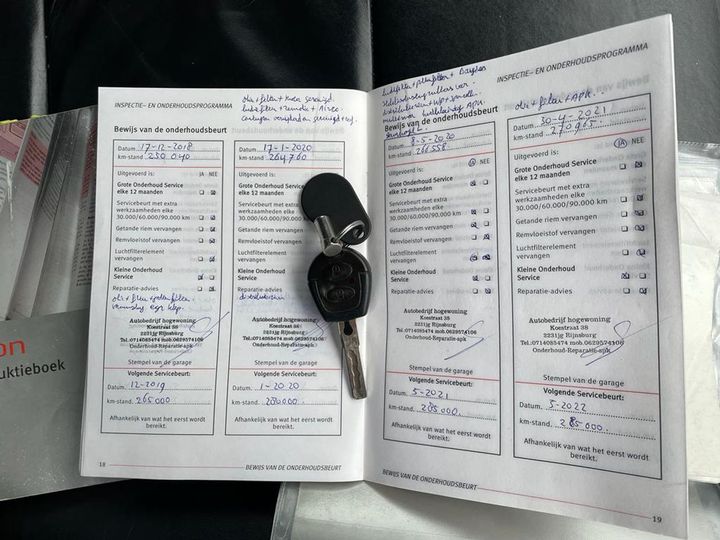 on
uktieboek
INSPECTIE- EN ONDERHOUDSPROGRAMMA
Bewijs van de onderhoudsbeurt
Datum 17-12-2018
km-stand 250 040
Uitgevoerd is: JA NEE
Grote Onderhoud Service
elke 12 maanden
Servicebeurt met extra
werkzaamheden elke
30.000/60.000/90.000 km
Getande riem vervangen
Remvloeistof vervangen
Luchtfilterelement
vervangen
Kleine Onderhoud
Service
Reparatie-advies
olie + filter +
Autobedrijf hogewoning
Koestraat 38
2231jg Rijnsburg
Tel.0714085474 mob.0629574108
Onderhoud-Reparatie-apk
Stempel van de garage
Volgende Servicebeurt:
Datum 12-2019
km-stand 265000
Afhankelijk van wat het eerst wordt
bereikt.
18
olie + filter +
Datum 17-1-2020
km-stand 264760
Uitgevoerd is:
Grote Onderhoud Service
elke 12 maanden
Servicebeurt met extra
werkzaamheden elke
30.000/60.000/90.000
Getande riem vervangen
Remvloeistof vervangen
Luchtfilterelement
vervangen
Kleine Onderhoud
Service
Reparatie-advies
Autobedrijf hogewoning
Koestraat 38
2231jg Rijnsburg
Tel.0714085474 mob.0629574108
Onderhoud-Reparatie-apk
Stempel van de garage
Volgende Servicebeurt:
Datum 1-2020
km-stand
Afhankelijk van wat het eerst wordt
bereikt.
BEWIJS VAN DE ONDERHOUDSBEURT
INSPECTIE- EN ONDERHOUDSPROGRAMMA
Bewijs van de onderhoudsbeurt
Datum 8-5-2020
km-stand 266558
Uitgevoerd is: JA NEE
Grote Onderhoud Service
elke 12 maanden
Servicebeurt met extra
werkzaamheden elke
30.000/60.000/90.000 km
Getande riem vervangen
Remvloeistof vervangen
Luchtfilterelement
vervangen
Kleine Onderhoud
Service
Reparatie-advies
Autobedrijf hogewoning
Koestraat 38
2231jg Rijnsburg
Tel.0714085474 mob.0629574108
Onderhoud-Reparatie-apk
Stempel van de garage
Volgende Servicebeurt:
Datum 5-2021
km-stand 285000.
Afhankelijk van wat het eerst wordt
bereikt.
BEWIJS VAN DE ONDERHOUDSBEURT
INSPECTIE- EN ONDERHOUDSPROGRAMMA
olie + filter + APK.
Datum 30-4-2021
km-stand 270965
Uitgevoerd is: JA NEE
Grote Onderhoud Service
elke 12 maanden
Servicebeurt met extra
werkzaamheden elke
30.000/60.000/90.000 km
Getande riem vervangen
Remvloeistof vervangen
Luchtfilterelement
vervangen
Kleine Onderhoud
Service
Reparatie-advies
Autobedrijf hogewoning
Koestraat 38
2231jg Rijnsburg
Tel.0714085474 mob.0629574108
Onderhoud-Reparatie-apk
Stempel van de garage
Volgende Servicebeurt:
Datum 5-2022
km-stand 285000.
Afhankelijk van wat het eerst wordt
bereikt.
19